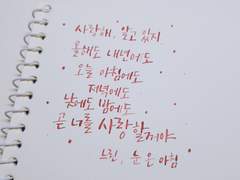 사랑해. 알고 있지
올해도 내년에도
오늘 아침에도
저녁에도
낮에도 밤에도
곧 너를 사랑할거야
느린, 눈 은 아침